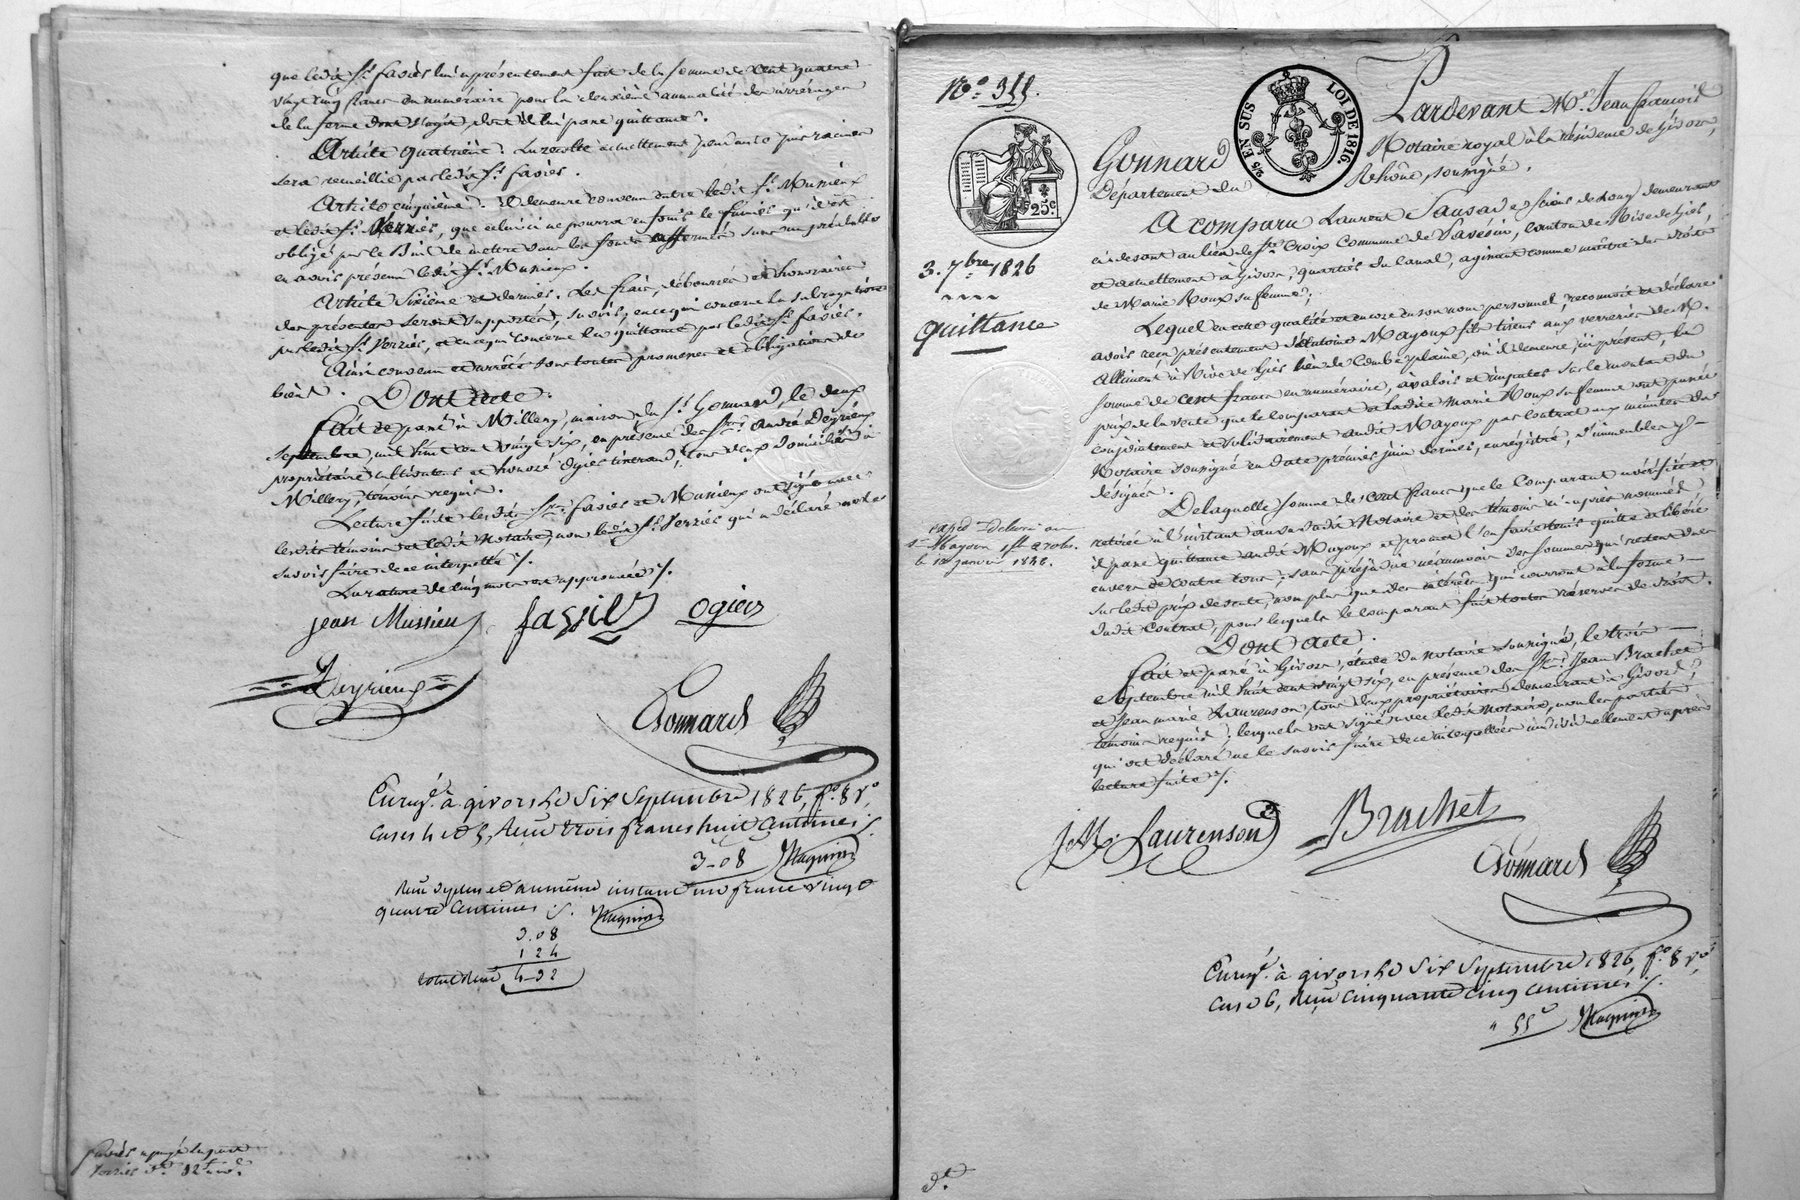 que ledit Sr. faviés lui a présentement fait de la somme de cent quatre
vingt cinq francs en numéraire pour la deuxième annuité des arrérages
de la ferme dont s'agit, dont il lui passe quittance.
Article quatrième. La recolte actuellement pendante par racines
sera recueillie par ledit Sr. faviés.
Article cinquième. il demeure convenu entre ledit Sr. Mussieux
et ledit Sr. Verziés, que celui-ci ne pourra enfouir le fumier qu'il est
obligé par le Bail de mettre dans les fonds affermés sans au préalable
en avoir prévenu ledit Sr. Mussieux.
Article Sixième et dernier. Les frais, déboursés et honoraires
des présentes seront supportés, savoir, en ce qui concerne la subrogation
par ledit Sr. Verziés, et en ce qui concerne la quittance par ledit Sr. faviés.
Ainsi convenu et arrêté sous toutes promesses et obligations de
biens. Dont acte.
fait et passé à Millery, maison du Sr. Gonnard, le deux
septembre, mil huit cent vingt six, en présence des Srs. André Deyrieux
propriétaire cultivateur et honoré Ogiés tisserand, tous deux domiciliés à
Millery, témoins requis.
Lecture faite lesdits Srs. faviés et Mussieux ont signé avec
lesdits témoins et ledit Notaire, non ledit Sr. Verziés qui a déclaré ne le
savoir faire de ce interpellé ./.
La rature de cinq mots est approuvée ./.
jean Mussieu faviés ogiers
Deyrieux
Gonnard
Enregé. à givors le Six Septembre 1826, fo. 8 ro.
cases 4 et 5, Reçu trois francs huit Centimes ./.
3-08
un franc vingt
quatre Centimes ./.
3.08
1 24
total Reçu 4-32
No. 355.
3. 7bre. 1826
quittance
25c
25 EN SUS
LOI DE 1816.
Pardevant Me. Jean françois
Gonnard Notaire royal à la résidence de Givors,
Département du Rhône, soussigné.
A comparu Laurent Sausai demeurant
ci-devant au lieu de Ste. Croix Commune de Pavesin, canton de Rive de Giés,
et actuellement à Givors, quartier du Canal, agissant comme maître des droits
de Marie Roux sa femme;
Lequel en cette qualité et encore en son nom personnel, reconnait et déclare
avoir reçu présentement d'Antoine Mayoux fils tireur aux verreries de M.
Alliment à Rive de Giés lieu de Combeplaine, où il demeure, ici présent, la
somme de cent francs en numéraire, à valoir et imputer sur le montant du
prix de la vente que le comparant et ladite Marie Roux sa femme ont passée
conjointement et solidairement audit Mayoux par contrat aux minutes du
Notaire soussigné en date premier juin dernier, enregistré, d'immeubles y
désignés.
De laquelle somme de cent francs que le Comparant a vérifiée et
retirée à l'instant au su dudit Notaire et des témoins ci-après nommés
il passe quittance audit Mayoux et promet l'en faire tenir quitte et libéré
envers et contre tous, sans préjudice néanmoins des sommes qui restent dues
sur ledit prix de vente, non plus que des intérêts qui courront à la forme
dudit Contrat, pour lesquels le comparant fait toutes réserves de droit.
Dont acte.
fait et passé à Givors, étude du Notaire soussigné, le trois
Septembre mil huit cent vingt six, en présence des Srs. Jean Brachet
et Jean marie Laurenson, tous deux propriétaires demeurant à Givors,
témoins requis, lesquels ont signé avec ledit Notaire, non les parties
qui ont déclaré ne le savoir faire de ce interpellées individuellement après
lecture faite ./.
JM. Laurenson Brachet
Gonnard
Enregé. à givors le Six Septembre 1826, fo. 8 ro.
case 6, Reçu cinquante cinq centimes ./.
" 55c